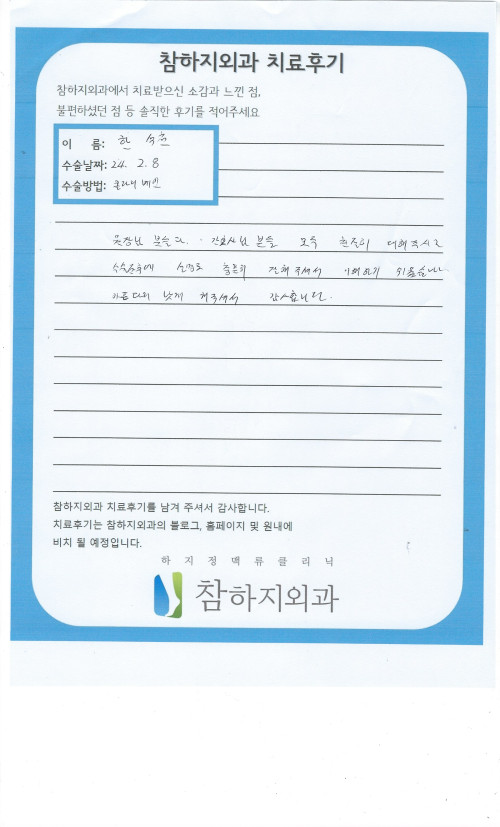 참하지외과 치료후기
참하지외과에서 치료받으신 소감과 느낀 점,
불편하셨던 점 등 솔직한 후기를 적어주세요
이 름: 한
수술날짜: 24. 2. 8
수술방법: 클라리 베인
원장님 간호사님 분들 모두 친절히 대해주시고
수술후에 설명도 충분히 전해 주셔서 이해하기 쉬웠습니다
아픈다리 낫게 해주셔서 감사합니다.
참하지외과 치료후기를 남겨 주셔서 감사합니다.
치료후기는 참하지외과의 블로그, 홈페이지 및 원내에
비치 될 예정입니다.
하지정맥류클리닉
참하지외과